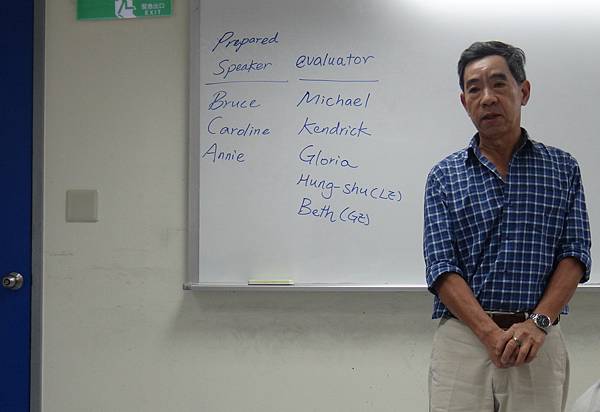 緊急出口
EXIT
Prepared
Speaker evaluator
Bruce Michael
Caroline Kendrick
Annie Gloria
Hung-shu (LE)
Beth (GE)